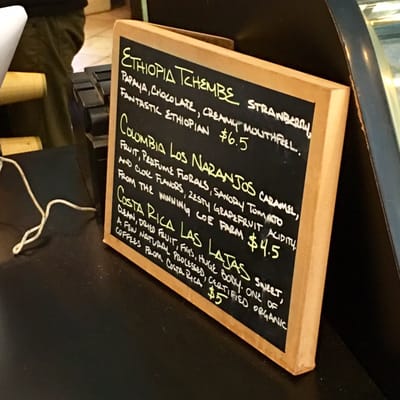 ETHIOPIA TCHEMBE STRAWBERRY,
PAPAYA, CHOCOLATE, CREAMY MOUTHFEEL.
FANTASTIC ETHIOPIAN $6.5
COLOMBIA LOS NARANJOS CARAMEL,
FRUIT, PERFUME FLORALS, SAVORY TOMATO
AND CLOVE FLAVORS, ZESTY GRAPEFRUIT ACIDITY
FROM THE WINNING COE FARM $4.5
COSTA RICA LAS LAJAS SWEET,
CLEAN, DRIED FRUIT, FIGS, HUGE BODY. ONE OF
A FEW NATURAL PROCESSED, CERTIFIED ORGANIC
COFFEES FROM COSTA RICA. $5